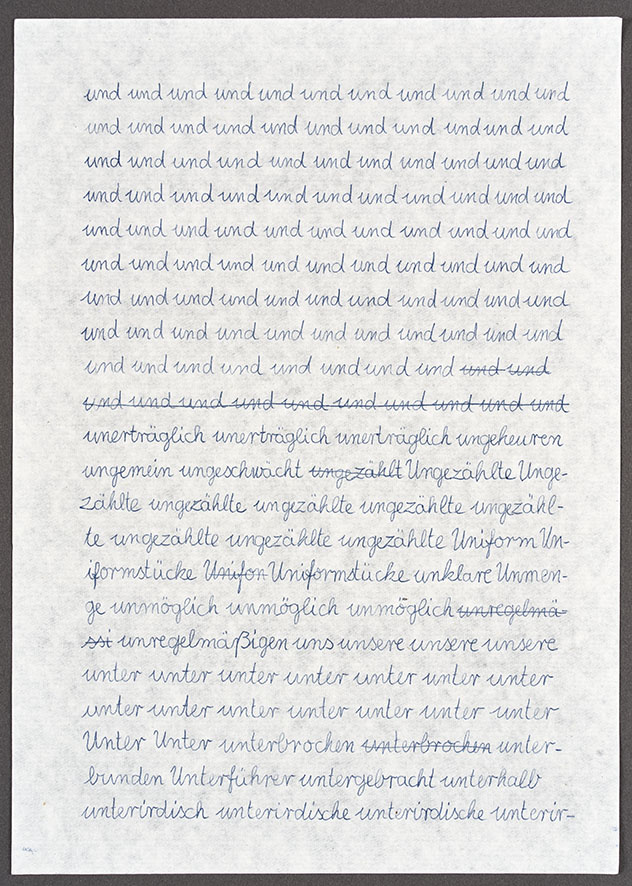 und und und und und und und und und und und
und und und und und und und und und und und
und und und und und und und und und und und
und und und und und und und und und und und
und und und und und und und und und und und
und und und und und und und und und und und
und und und und und und und und und und und
und und und und und und und und und und und
und und und und und und und und und und
und und und und und und und und und und
unerträglich unerträglich unerträglich ungeheuren
ungemein ungeschwächt ungezählt Ungezählte Unge-
zählte ungezählte ungezählte ungezählte ungezähl-
te ungezählte ungezählte ungezählte Uniform Un-
iformstücke Unifor Uniformstücke unklare Unmen-
ge unmöglich unmöglich unmöglich unregelmä-
ssi unregelmäßigen uns unsere unsere unsere
unter unter unter unter unter unter unter
unter unter unter unter unter unter unter
Unter Unter unterbrochen unterbrochen unter-
bunden Unterführer untergebracht unterhalb
unterirdisch unterirdische unterirdische unterir-